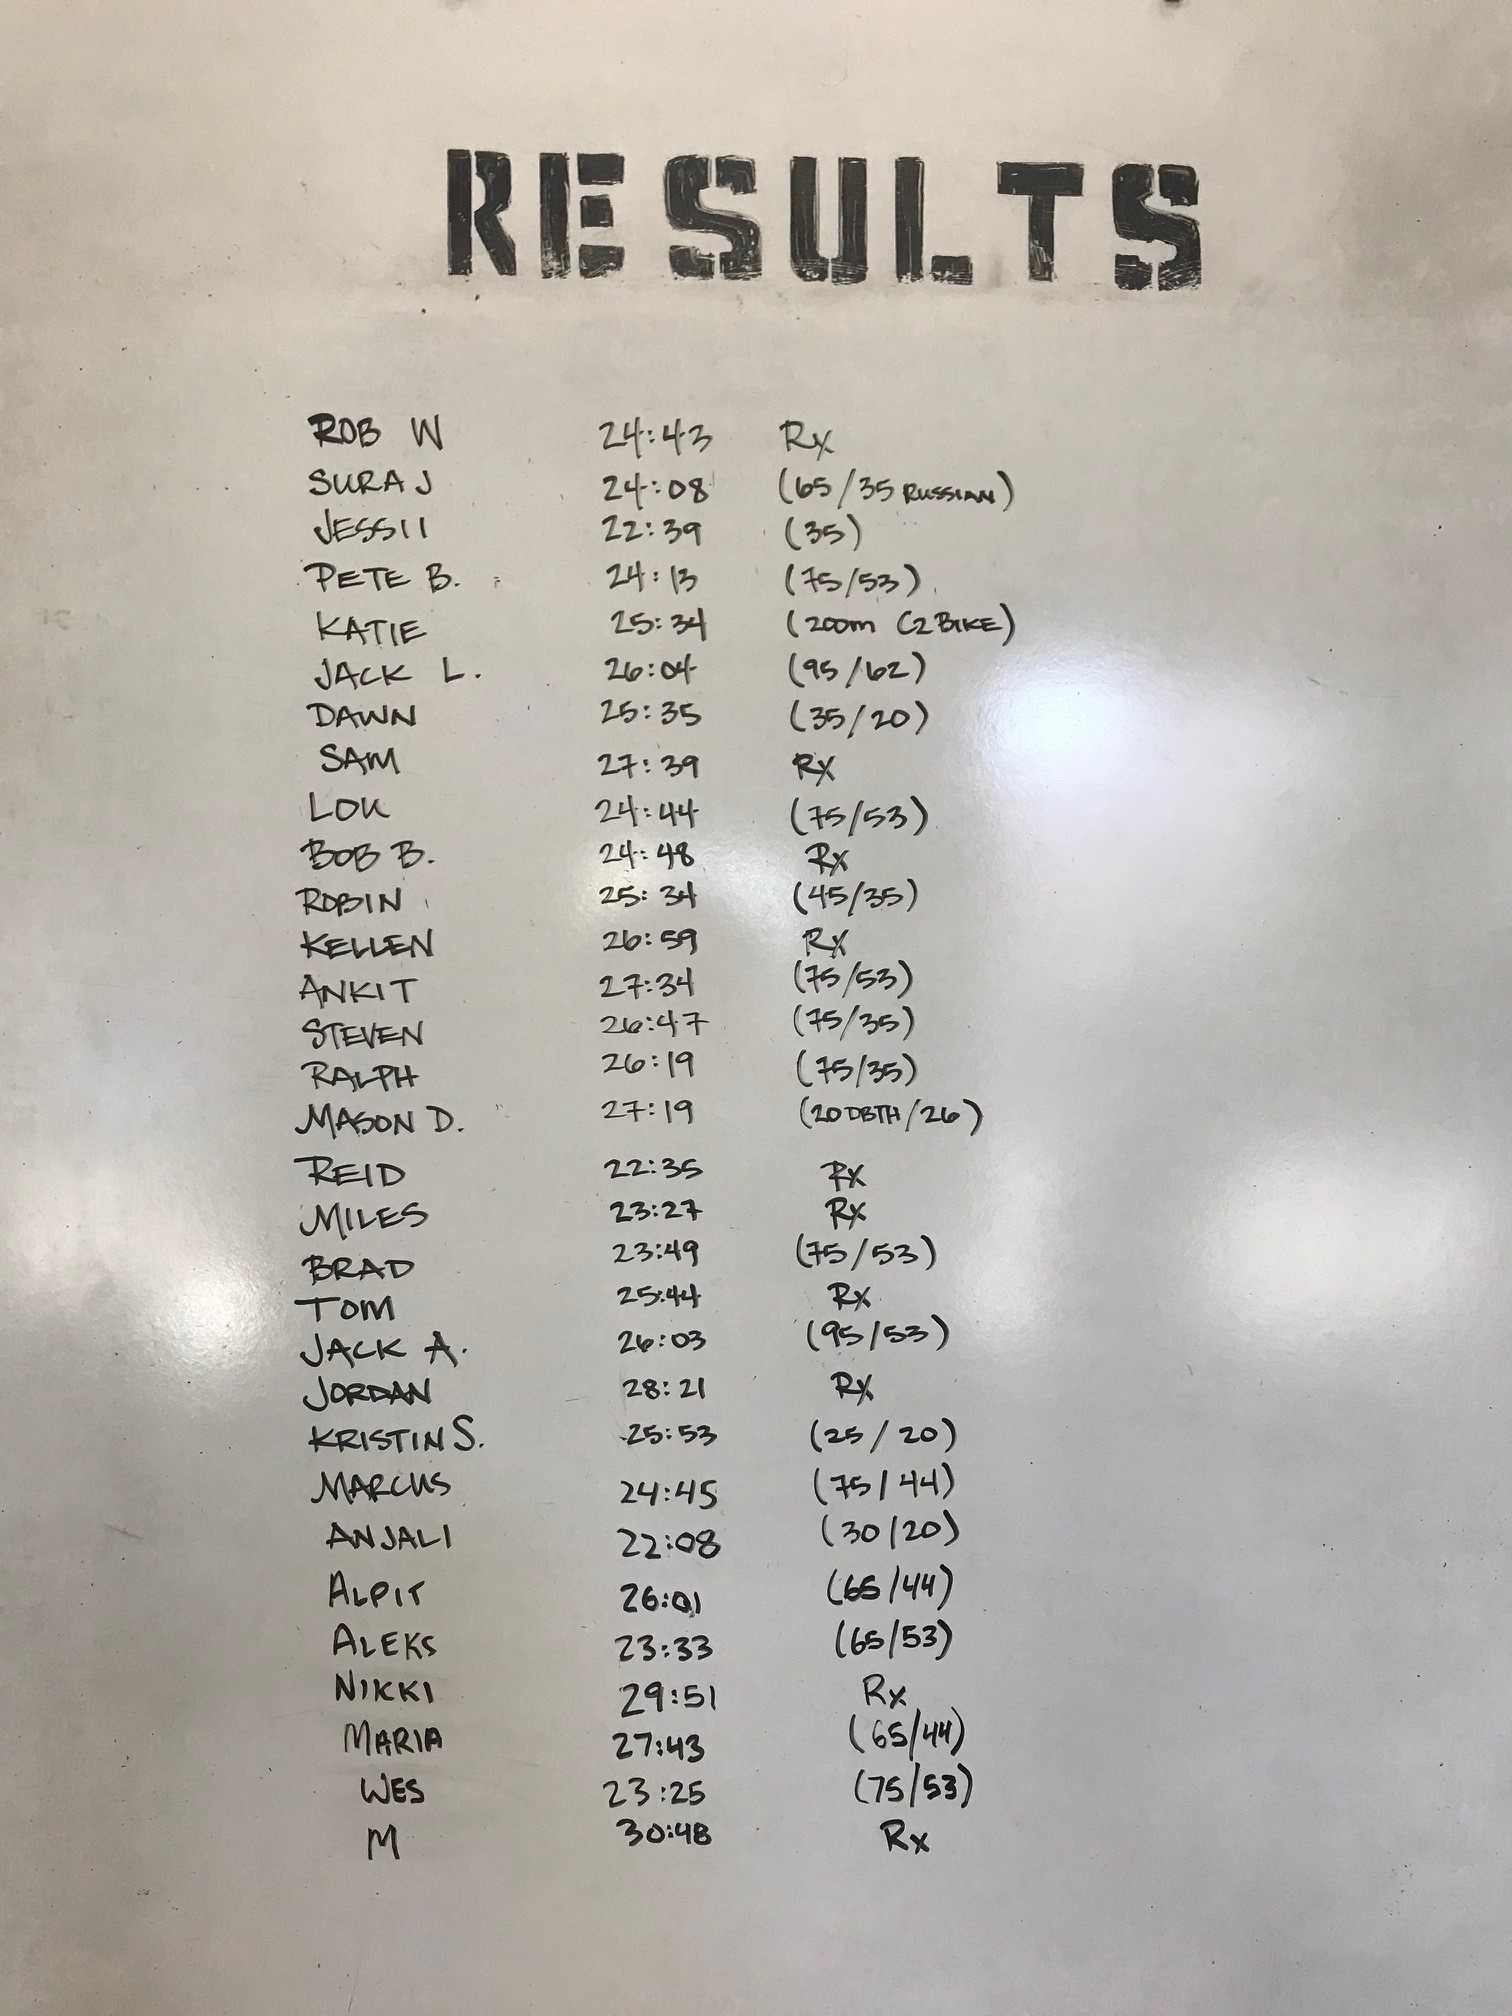 RESULTS
ROB W 24:43 Rx
SURAJ 24:08 (65/35 RUSSIAN)
JESSII 22:39 (35)
PETE B. 24:13 (75/53)
KATIE 25:34 (200m C2 BIKE)
JACK L. 26:04 (95/62)
DAWN 25:35 (35/20)
SAM 27:39 Rx
LOU 24:44 (75/53)
BOB B. 24:48 Rx
ROBIN 25:34 (45/35)
KELLEN 26:59 Rx
ANKIT 27:34 (75/53)
STEVEN 26:47 (75/35)
RALPH 26:19 (75/35)
MASON D. 27:19 (20 DBTH/26)
REID 22:35 Rx
MILES 23:27 Rx
BRAD 23:49 (75/53)
TOM 25:44 Rx
JACK A. 26:03 (95/53)
JORDAN 28:21 Rx
KRISTIN S. 25:53 (25/20)
MARCUS 24:45 (75/44)
ANJALI 22:08 (30/20)
ALPIT 26:01 (65/44)
ALEKS 23:33 (65/53)
NIKKI 29:51 Rx
MARIA 27:43 (65/44)
WES 23:25 (75/53)
M 30:48 Rx